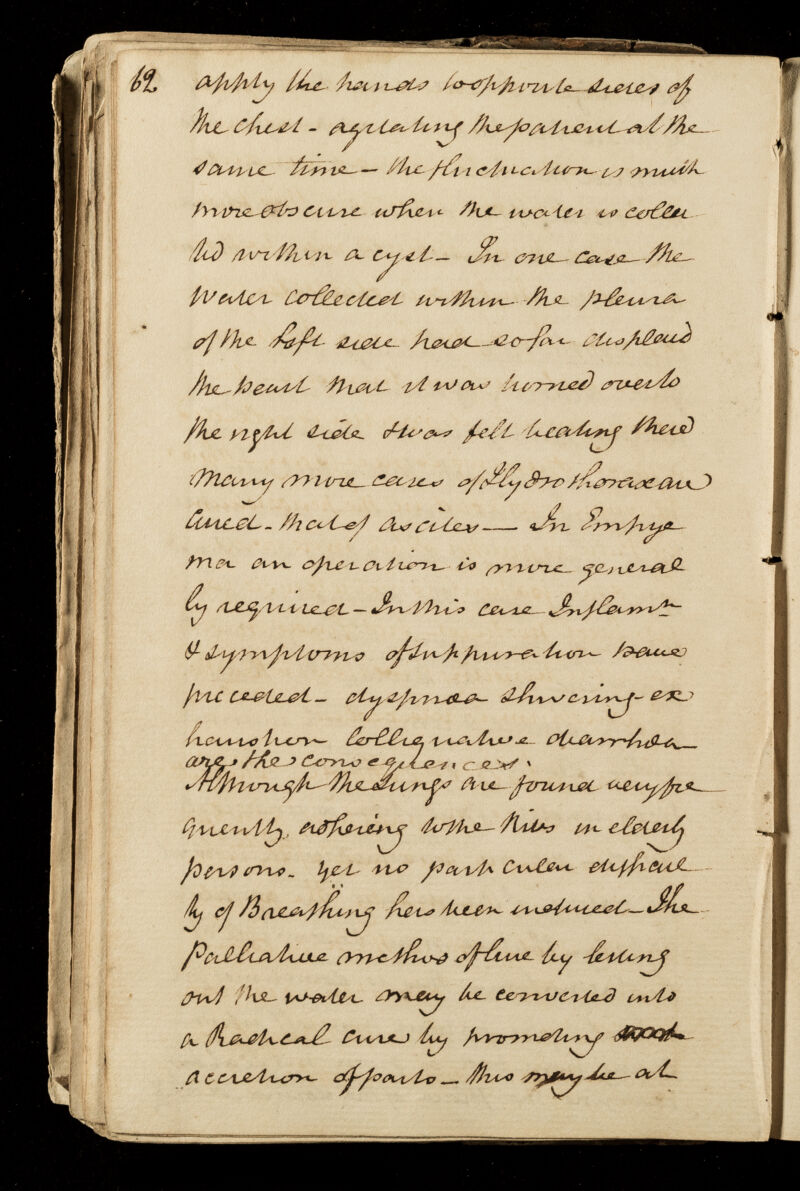 62
apply the hands to opposite sides of
the Chest - agitating the patient at the
same time - the fluctuation is much
more obscure when the water is collec
ted within a cyst - In one case the
Water collected within the pleura
of the left side had so far displaced
the heart that it was turned over to
the right side & was felt beating there
Many more cases of Hydrothorax are
Cured - that of ascites — In Empye
ma an operation is more general
ly required - In this case Inflamn
& symptoms of suppuration have
preceded - dyspnœa shivering ex
haustion Colliquative diarrhœa
are the consequences.
Although the Lungs are found very fre
quently, adhering to the Ribs in elderly
persons - yet no particular difficul
ty of Breathing has been induced - The
Palliative method of cure by letting
out the water may be converted into
a Radical cure by promoting
accretion of parts - this may be at